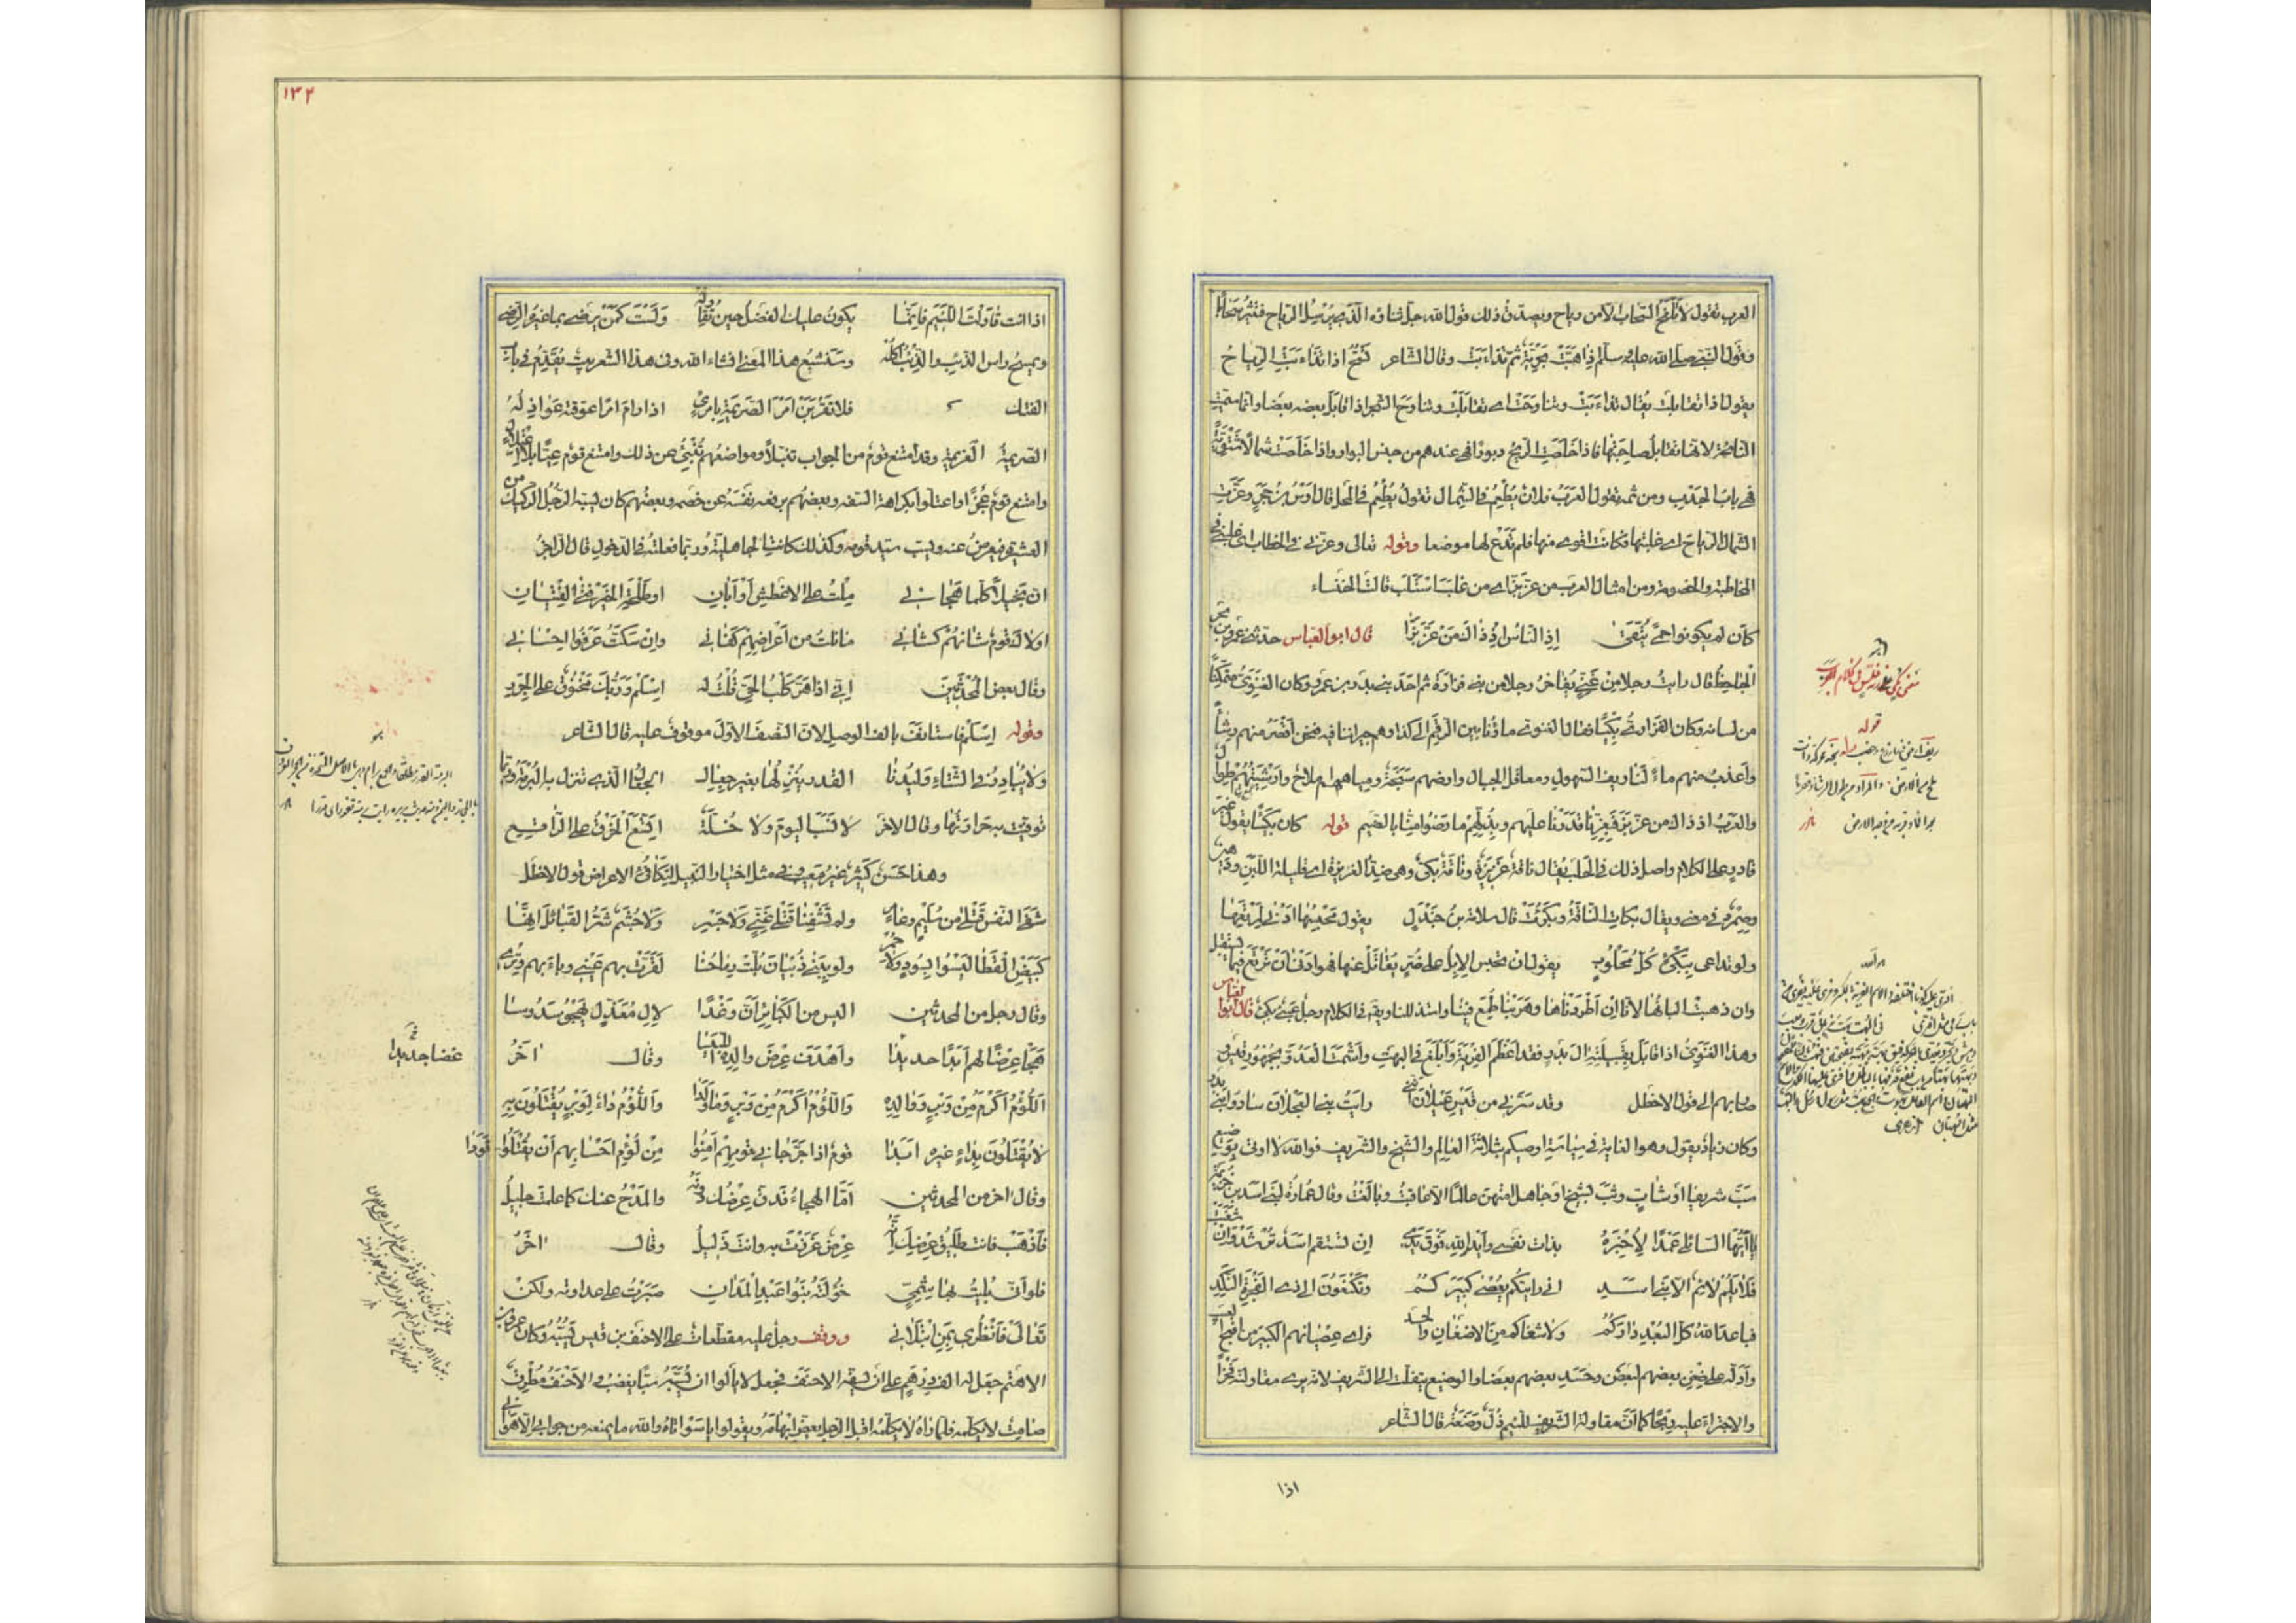 العرب تقول لا تلقح السحاب الا من رياح ويصدق ذلك قول الله جل ثناؤه الذي يرسل الرياح فتثير سحابا
وتقول النبي صلى الله عليه وسلم اذا هبت بحرية ثم تذاءبت وقال الشاعر تسح اذا تذاءبت الرياح
يقول اذا تقابلت يقال تذاءبت وتناوحت اي تقابلت وتناوح الشجر اذا قابل بعضه بعضا وانما سميت
النائحة لانها تقابل صاحبتها فاذا خلصت الريح دبورا فهي عندهم من جنس البوار واذا خلصت شمالا شتوية
فهي باب الجدب ومن ثم تقول العرب فلان يطعم في الشمال تقول يطعم في المحل قال اوس بن حجر وعزت
الشمال الرياح اي غلبتها فكانت اقوى منها فلم تدع لها موضعا وقوله تعالى وعزني في الخطاب اي غلبني في
المخاطبة والخصومة ومن امثال العرب من عز بز اي من غلب استلب قالت الخنساء
كأن لم يكونوا حمى يتقى اذ الناس اذ ذاك من عز بزا قال ابو العباس حدثني عمرو بن بحر
الجاحظ قال رايت رجلا من غني يفاخر رجلا من بني فزارة ثم احد بني بدر بن عمرو وكان الغنوي متمكنا
من لسانه وكان الفزاري بكيئا فقال الغنوي ماؤنا بين الرقم الى كذا وهم جيراننا فيه فنحن اقصر منهم رشأ
واعذب منهم ماء لنا ريف السهول ومعاقل الجبال وارضهم سبخة ومياههم املاح وارشيتهم طوال
والعرب اذ ذاك من عز بز فبعزنا قدرنا عليهم وبذلهم ما رضوا منا بالضيم قوله كان بكيئا يقول غير
قادر على الكلام واصل ذلك في الحلب يقال ناقة غزيرة وناقة بكئ وهي ضد الغزيرة اي قليلة اللبن
ويقال بكات الناقة وبكؤت قال سلامة بن جندل يقول محبسها ادنى لمرتعها
ولو تداعى ببكئ كل محلوب يقول ان نحبس الابل على ضر نقاتل عنها فهو ادنى ان ترتع فيما يستقبل
وان ذهبت البانها لانا ان اطردناها وهربنا طمع فينا واستذللنا ويقال في الكلام رجل عيي بكئ قال ابو العباس
وهذا الغنوي اذا قابل بقبيلته ال بدر فقد اعظم الفرية وابلغ في البهت واشمت العدو بجمهور قيس
صار بهم الى قول الاخطل وقد سرني من قيس عيلان انني رايت بني العجلان سادوا بني بدر
وكان زياد يقول وهو الغاية في السياسة اوصيكم بثلاثة العالم والشيخ والشريف فوالله لا اوتى بوضيع
سب شريفا او شاب وثب بشيخ او جاهل امتهن عالما الا عاقبت وبالغت وقال عمارة لبني اسد بن خزيمة
يا ايها السائلي عمدا لاخبره بذات نفسي وايدي الله فوق يدي ان تستقم اسد ترشد وان شغبت
فلا يلم لائم الا بني اسد اني رايتكم يعصى كبيركم وتكنفون الى ذي الفجرة النكد
فباعد الله كل البعد داركم ولا شفاكم من الاضغان والحسد فراى عصيانهم الكبير من اقبح العيب
وادله على ضغن بعضهم لبعض وحسد بعضهم بعضا والوضيع يتفلت الى الشريف لانه يرى مقاولته فخرا
والاجتراء عليه ربحا كما ان مقاولة الشريف للئيم ذل وضعة قال الشاعر
اذا
قوله
١٣٢
اذا انت قاولت اللئيم فانما يكون عليك الفضل حين تقاوله ولست كمن يرضى بما غيره الرضى
ويمسح راس الذئب والذئب اكله وسنشبع هذا المعنى ان شاء الله وفي هذا الشعر بيت يقدم في باب
الفتك فلا تقربن امر الصريمة بامرئ اذا رام امرا عوقته عواذله
الصريمة العزيمة وقد امتنع قوم من الجواب تنبلا ومواضعهم تنبئ عن ذلك وامتنع قوم عيا بلا اعتلال
وامتنع قوم عجزا واعتلوا بكراهة السفه وبعضهم برفعه نفسه عن خصمه وبعضهم كان يسبه الرجل الركيك من
العشيرة فيعرض عنه ويسب سيد قومه وكذلك كانت الجاهلية وربما فعلته في الذحول قال الراجز
ان بجيلا كلما هجاني ملت على الاغطش او ابان او طلحة الخير فتى الفتيان
اولاك قوم شانهم كشاني ما نلت من اعراضهم كفاني وان سكت عرفوا احساني
وقال بعض المحدثين اني اذا هر كلب الحي قلت له اسلم وربك مخنوق على الجرر
وقوله اسلم فاستانف بالف الوصل لان النصف الاول موقوف عليه قال الشاعر
ولا يبادر في الشتاء وليدنا القدر ينزلها بغير جعال الجعال الذي تنزل به البرمة وربما
توقيت به حرارتها وقال الاخر لا نسب اليوم ولا خلة اتسع الخرق على الراقع
وهذا حسن كثير غير معيب وفي مثل اختيار النبيل لتكافؤ الاعراض قول الاخطل
شفى النفس قتلى من سليم وعامر ولم تشفها قتلى غني ولا جسر ولا جشم شر القبائل انها
كبيض القطا ليسوا بسود ولا حمر ولو ببني ذبيان بلت رماحنا لقرت بهم عيني وباء بهم وتري
وقال رجل من المحدثين اليس من الكبائر ان وغدا لال معذل يهجو سدوسا
هجا عرضا لهم ابدا جديدا واهدف عرض والده اللبيسا وقال اخر
اللؤم اكرم من وبر ووالده واللؤم اكرم من وبر وما ولدا واللؤم داء لوبر يقتلون به
لا يقتلون بداء غيره ابدا قوم اذا جر جاني قومهم امنوا من لؤم احسابهم ان يقتلوا قودا
وقال اخر من المحدثين اما الهجاء فدق عرضك دونه والمدح عنك كما علمت جليل
فاذهب فانت طليق عرضك انه عرض عززت به وانت ذليل وقال اخر
فلو اني بليت بهاشمي خؤولته بنو عبد المدان صبرت على عداوته ولكن
تعالى فانظري بمن ابتلاني ووقف رجل عليه مقطعات على الاحنف بن قيس يسبه وكان عمرو بن
الاهتم جعل له الف درهم على ان يسفه الاحنف فجعل لا يالو ان يسبه سبا يغضب والاحنف مطرق
صامت لا يكلمه فلما راه لا يكلمه اقبل الرجل يعض ابهامه ويقول يا سواتاه والله ما يمنعه من جوابي الا هواني
غضا جديدا